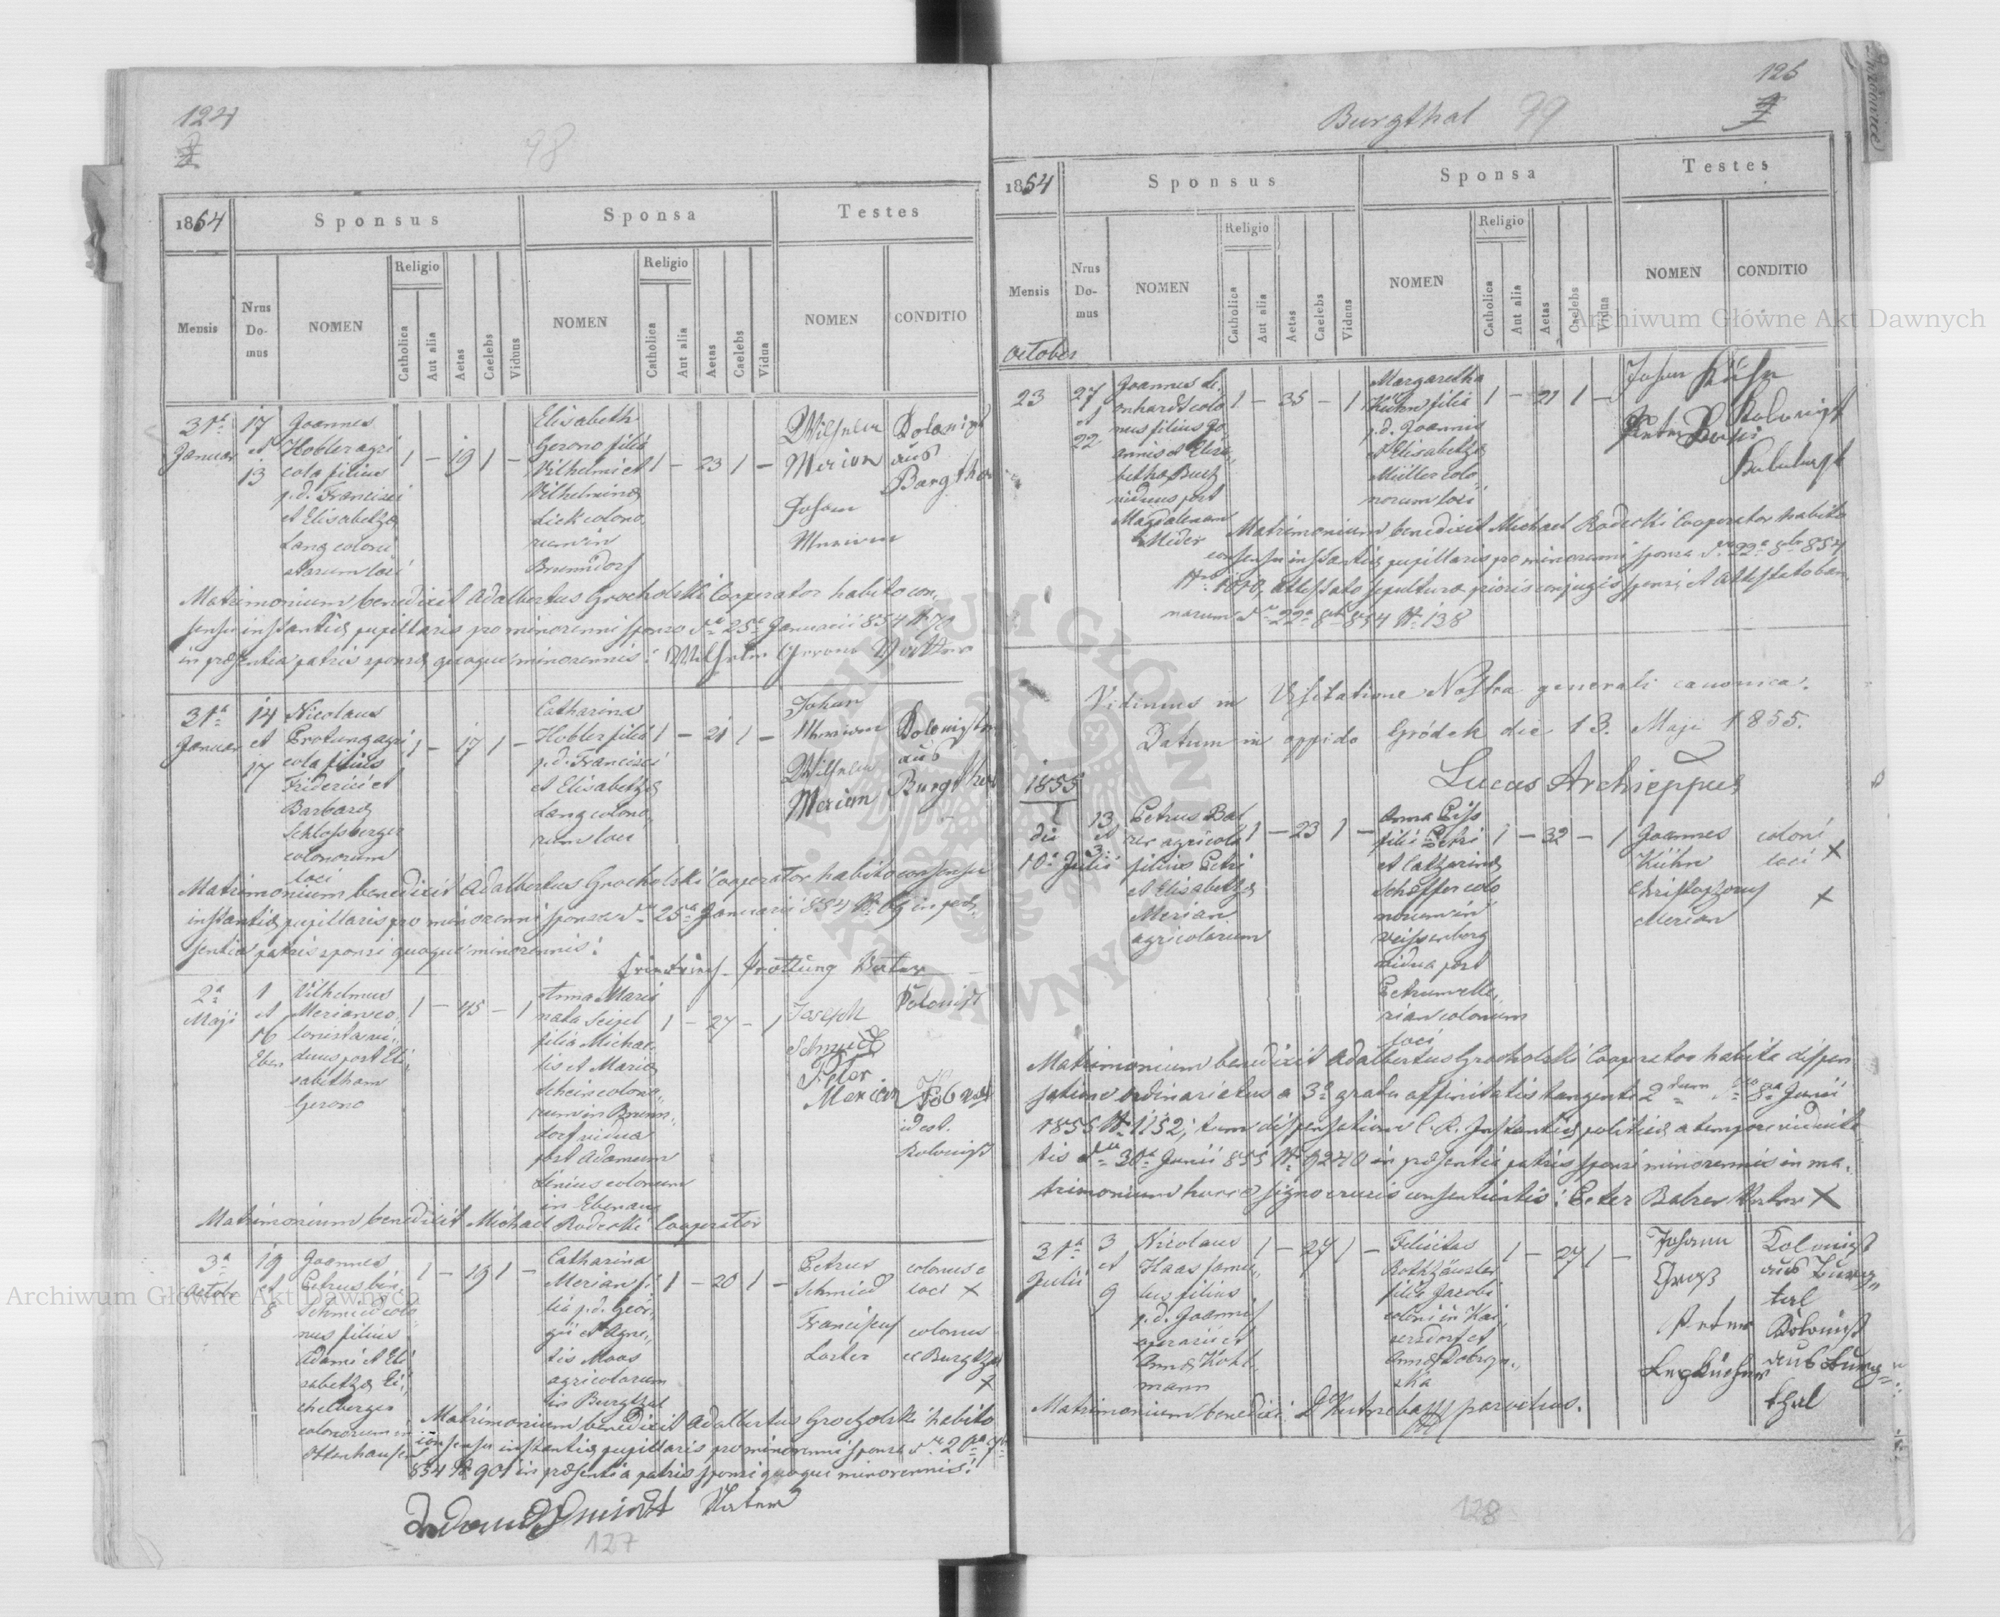 124
98
1854
Sponsus
Sponsa
Testes
Mensis
Nrus Do- mus
NOMEN
Religio
Catholica
Aut alia
Aetas
Caelebs
Viduus
NOMEN
Religio
Catholica
Aut alia
Aetas
Caelebs
Vidua
NOMEN
CONDITIO
31a
Januar
17
et
13
Joannes
Hobler agri
cola filius
p.d. Francisci
et Elisabethæ
Lang coloni
starum loci
1 — 19 1 —
Elisabeth
Gerono filia
Vilhelmi et
Vilhelminæ
Dick colono
rum in
Brunndorf
1 — 23 1 —
Wilhelm
Merian
Johann
Merian
Kolonist
aus
Burgthal
Matrimonium benedixit Adalbertus Grocholski Cooperator habito con,
sensu instantiæ pupillaris pro minorenni sponso de 25a Januarii 854 N 70
in præsentia patris sponsæ quoque minorennis: Wilhelm Gerono Vatter
31a
Januar
14
et
17
Nicolaus
Protung agri
cola filius
Friderici et
Barbaræ
Schlossberger
colonorum
loci
1 — 17 1 —
Catharina
Hobler filia
p.d. Francisci
et Elisabethæ
Lang colono,
rum loci
1 — 21 1 —
Johann
Merian
Wilhelm
Merian
Kolonisten
aus
Burgthal
Matrimonium benedixit Adalbertus Grocholski Cooperator habito consensu
instantiæ pupillaris pro minorenni sponsa de 25a Januarii 854 N 69 in præ,
sentia patris sponsi quoque minorennis:
Protung Vater
2a
Maji
1
et
16
Eben
Vilhelmus
Merian co,
lonista vi,
duus post Eli,
sabetham
Gerono
1 — 45 — 1
Anna Maria
nata Seipel
filia Michae,
lis et Mariæ
Schein colono,
rum in Brunn,
dorf vidua
post Adamum
Denius colonum
in Ebenau
1 — 27 — 1
Joseph
Schmidt
Peter
Merian
Kolonist
Kolonist
Matrimonium benedixit Michael Radecki Cooperator
3a
Octobr
19
et
8
Joannes
Petrus bin,
Schmied colo
nus filius
Adami et Eli
sabethæ Ei,
chelberger
colonorum in
Ottenhausen
1 — 19 1 —
Catharina
Merian fi,
lia p.d. Geor,
gii et Agne,
tis Maas
agricolarum
in Burgthal
1 — 20 1 —
Petrus
Schmied
Franciscus
Lorter
colonus e
loci X
colonus
e Burgthal
X
Matrimonium benedixit Adalbertus Grocholski habito
consensu instantiæ pupillaris pro minorenni sponsa de 20a 7br
854 N 901 in præsentia patris sponsi quoque minorennis:
Schmidt Vater
127
125
Burgthal 99
1854
Sponsus
Sponsa
Testes
Mensis
Nrus Do- mus
NOMEN
Religio
Catholica
Aut alia
Aetas
Caelebs
Viduus
NOMEN
Religio
Catholica
Aut alia
Aetas
Caelebs
Vidua
NOMEN
CONDITIO
October
23
27
et
22
Joannes Le,
onhardt colo
nus filius Jo
annis et Elisa,
betha Buch
viduus post
Magdalenam
Mider
1 — 35 — 1
Margaretha
Kühn filia
p.d. Joannis
et Elisabethæ
Müller colo
norum loci
1 — 21 1 —
Johann Kühn
Peter
Kolonist
Matrimonium benedixit Michael Radecki Cooperator habito
consensu instantiæ pupillaris pro minorenni sponsa de 22a 8bris 854
attestato sepulturæ prioris conjugis sponsi, et attestato ban,
norum de 22a 8bris 854 N 138
Vidimus in Visitatione Nostra generali canonica.
Datum in oppido Gródek die 13. Maji 1855.
Lucas Archieppus
1855
die
10a Julii
13
et
3
Petrus Bal
rer agricola
filius Petri
et Elisabethæ
Merian
agricolarum
1 — 23 1 —
Anna Giss
filia Petri
et Catharinæ
Schæffer colo
norum in
Veissenberg
vidua post
Petrum Me,
rian colonum
loci
1 — 32 — 1
Joannes
Kühn
Christophorus
Merian
coloni
loci X
X
Matrimonium benedixit Adalbertus Grocholski Cooperator habita dispen
satione Ordinariatus a 3o gradu affinitatis tangente 2dum de 8va Junii
1855 N 1152, tum dispensatione C. R. Instantiæ politicæ a tempore viduita,
tis de 30a Junii 855 N 9240 in præsentia patris sponsi minorennis in ma,
trimonium hocce signo crucis consentientis: Peter Balrer Vater X
31a
Julii
3
et
9
Nicolaus
Haas famu,
lus filius
p.d. Joannis
operarii et
Annæ Kohl
mann
1 — 27 1 —
Felicitas
Rothhäusler
filia Jacobi
coloni in Kai,
sersdorf et
Annæ Dobrzan,
ska
1 — 27 1 —
Johann
Groß
Peter
Kolonist
aus Burg,
tal
Kolonist
aus Burg=
thal
Matrimonium benedixi parochus.
128
Archiwum Główne Akt Dawnych
Archiwum Główne Akt Dawnych
ARCHIWUM GŁÓWNE AKT DAWNYCH